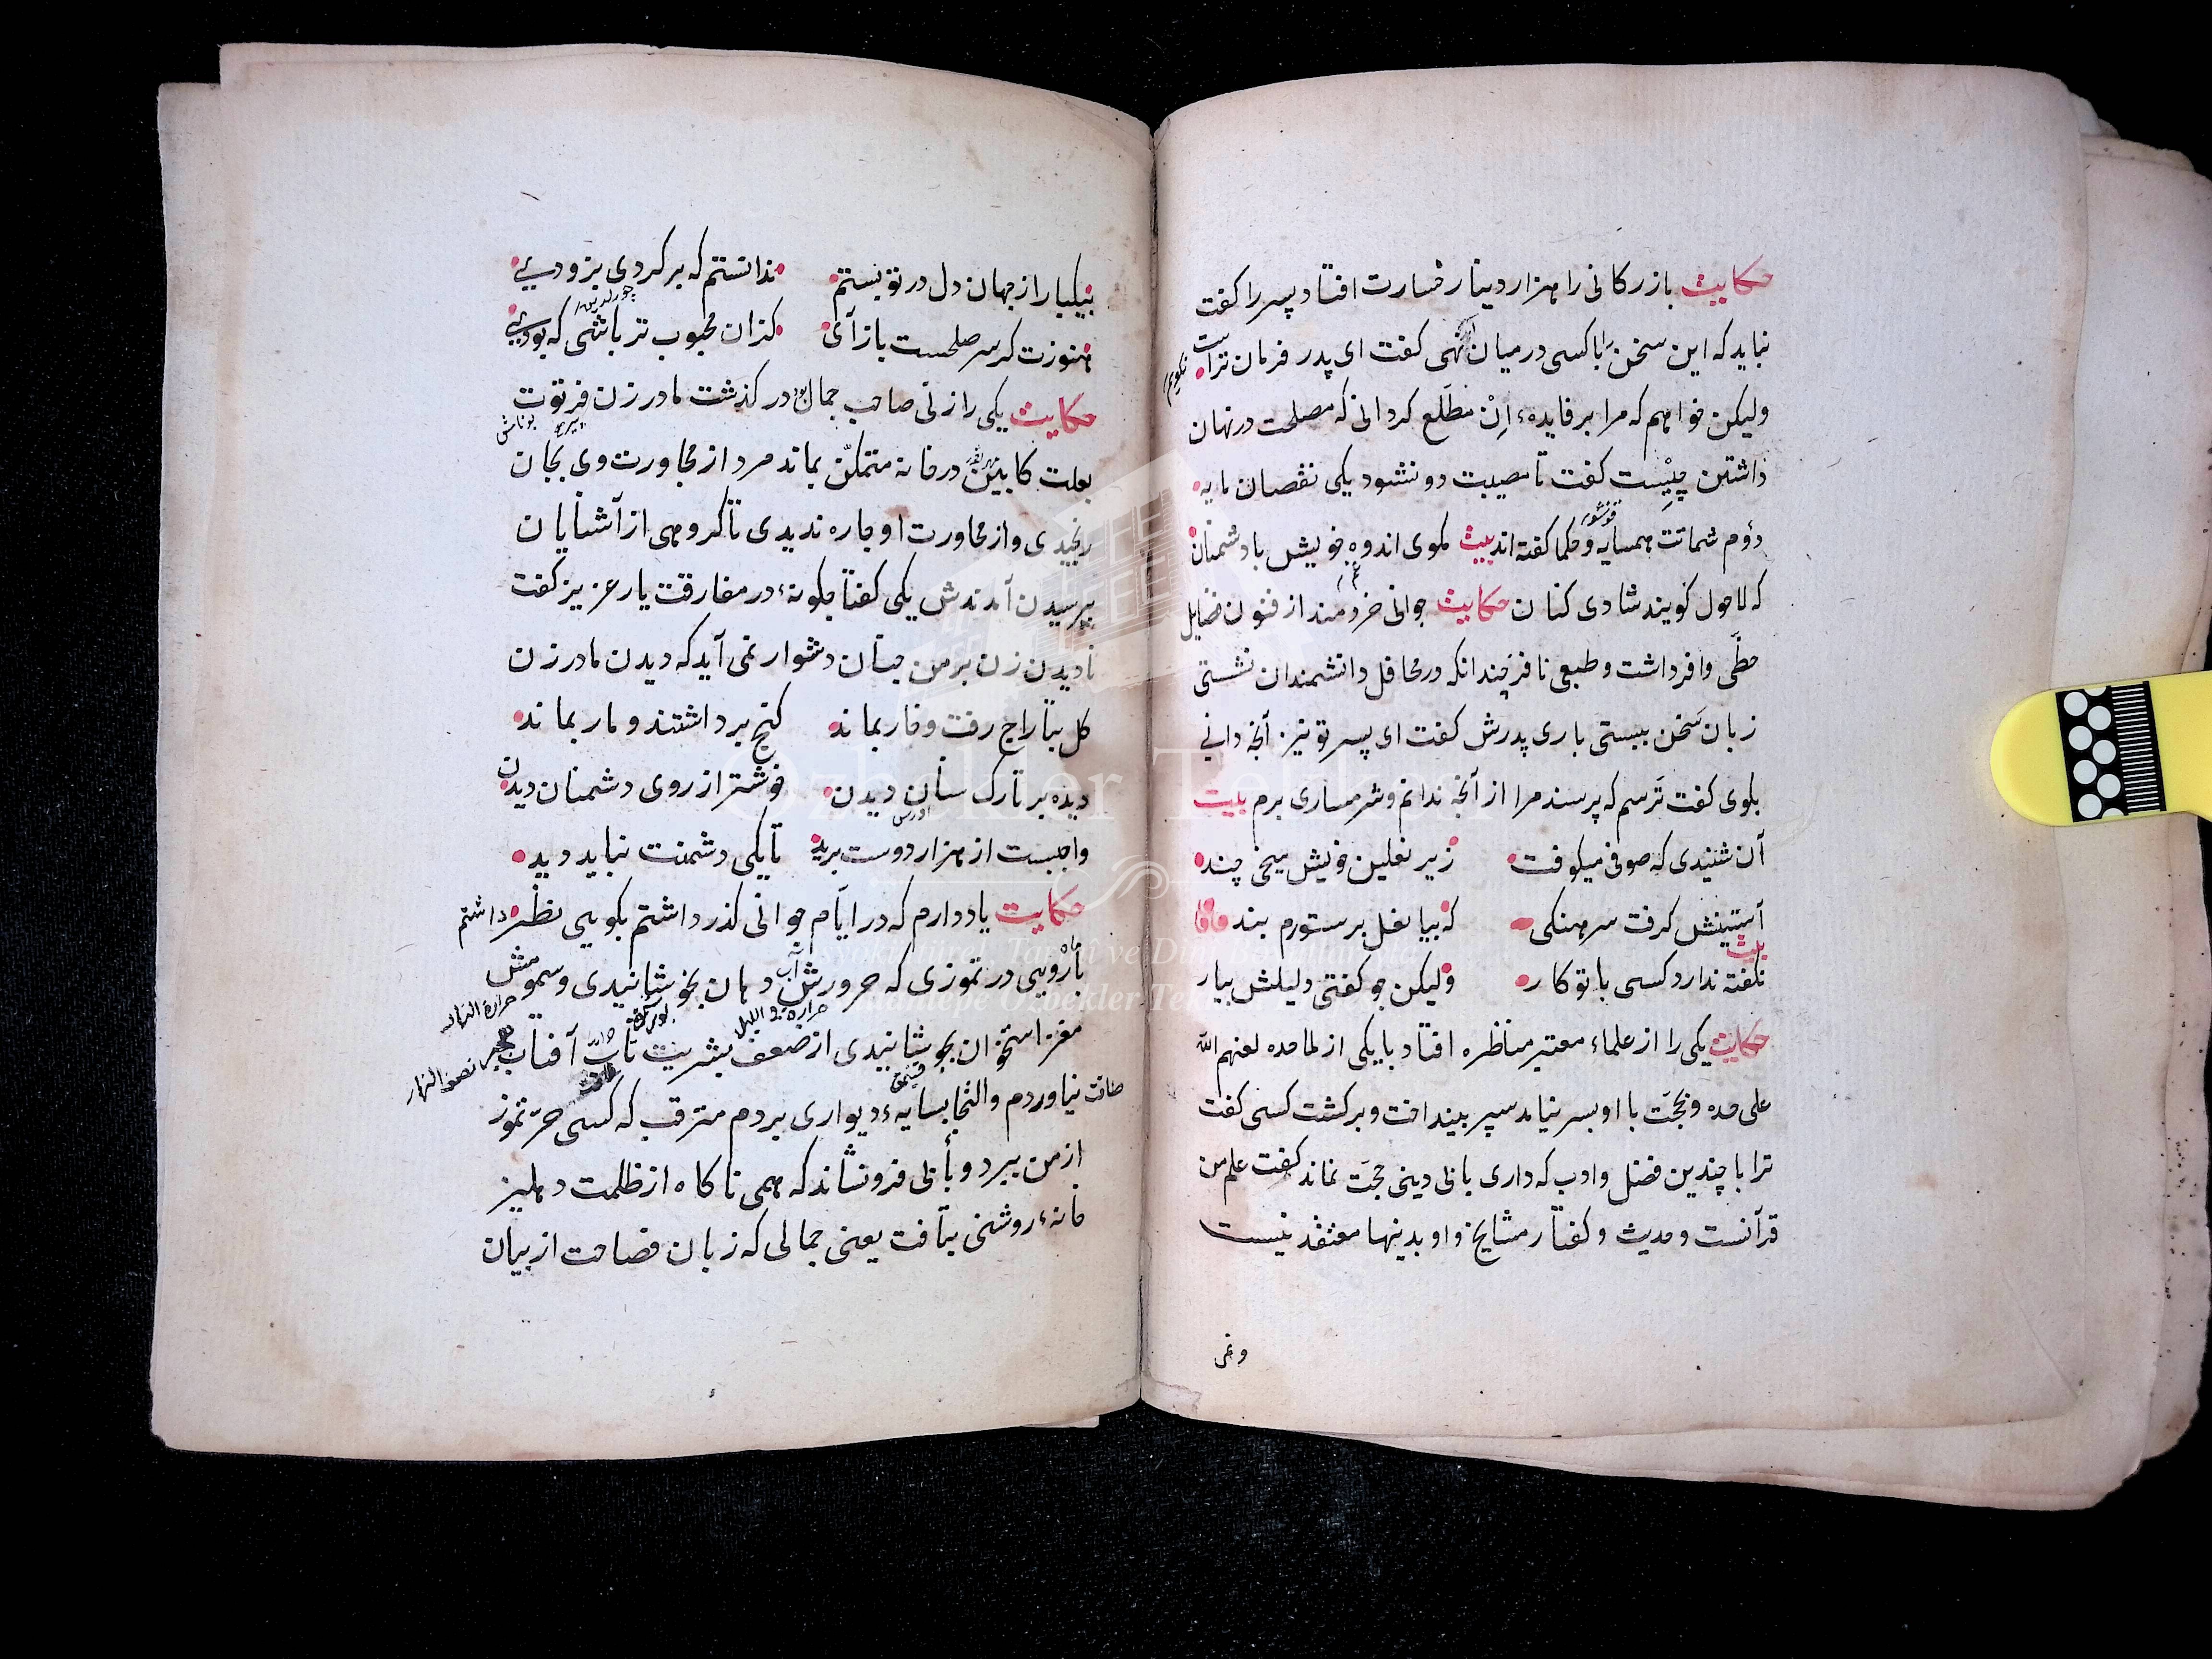 حکایت بازرکانی را هزار دینار خسارت افتاد پسر را کفت
نباید که این سخن را با کسی در میان نهی کفت ای پدر فرمان تراست نکویم
ولیکن خواهم که مرا بر فایدهٔ اِنْ مطّلع کردانی که مصلحت در نهان
داشتن چیست کفت تا مصیبت دو نشود یکی نقصان مایه
دوُم شماتت همسایه و حکما کفته اند بیت مکوی اندوه خویش با دشمنان
قونشو
که لاحول کویند شادی کنان حکایت جوانی خردمند از فنون فضایل
حظّی وافر داشت و طبعی نافر چندانکه در محافل دانشمندان نشستی
زبان سَخن ببستی باری پدرش کفت ای پسر تو نیز آنچه دانی
بکوی کفت تَرسم که پرسند مرا از آنچه ندانم و شرمساری برم بیت
آن شنیدی که صوفی میکوفت زیر نعلین خویش میخی چند
آستینش کرفت سرهنکی که بیا نعل بر ستورم بند
بیت
نکفته ندارد کسی با تو کار ولیکن چو کفتی دلیلش بیار
حکایت یکی را از علماء معتبر مناظره افتاد با یکی از ملاحده لعنهم الله
علی حده و بحجّت با او بسر نیامد سپر بینداخت و برکشت کسی کفت
ترا با چندین فضل و ادب که داری با بی دینی حجّت نماند کفت علم من
قرآنست و حدیث و کفتار مشایخ و او بدینها معتقد نیست
بیکبار از جهان دل در تو بستم ندانستم که برکردی بزودیی
هنوزت کر سر صلحست بازآی کزان محبوب تر باشی که بودیی
حکایت یکی را زنی صاحب جمال در کذشت مادر زن فرتوت
بعلت کابین در خانه متمکّن بماند مرد از مجاورت وی بجان
رنجیدی و از مجاورت او چاره ندیدی تا کروهی از آشنایان
بپرسیدن آمدندش یکی کفتا چکونهٔ در مفارقت یار عزیز کفت
نادیدن زن بر من چنان دشوار نمی آید که دیدن مادر زن
کل بتاراج رفت و خار بماند کنج برداشتند و مار بماند
دیده بر تارک سنان دیدن خوشتر از روی دشمنان دیدن
واجبست از هزار دوست برید تا یکی دشمنت نباید دید
حکایت یاد دارم که در ایّام جوانی کذر داشتم بکویی نظر داشتم
ماه
بارْویی در تموزی که حرورش آب دهان بخوشانیدی و سمومش
حرارة اللیل حرارة النهار
مغز استخوان بجوشانیدی از ضعف بشریت تاب آفتاب هجیر
نصف النهار
طاقت نیاوردم و التجا بسایهٔ دیواری بردم مترقب که کسی حرّ تموز
از من ببرد و بآبی فرونشاند که همی ناکاه از ظلمت دهلیز
خانهٔ روشنی بتافت یعنی جمالی که زبان فصاحت از بیان